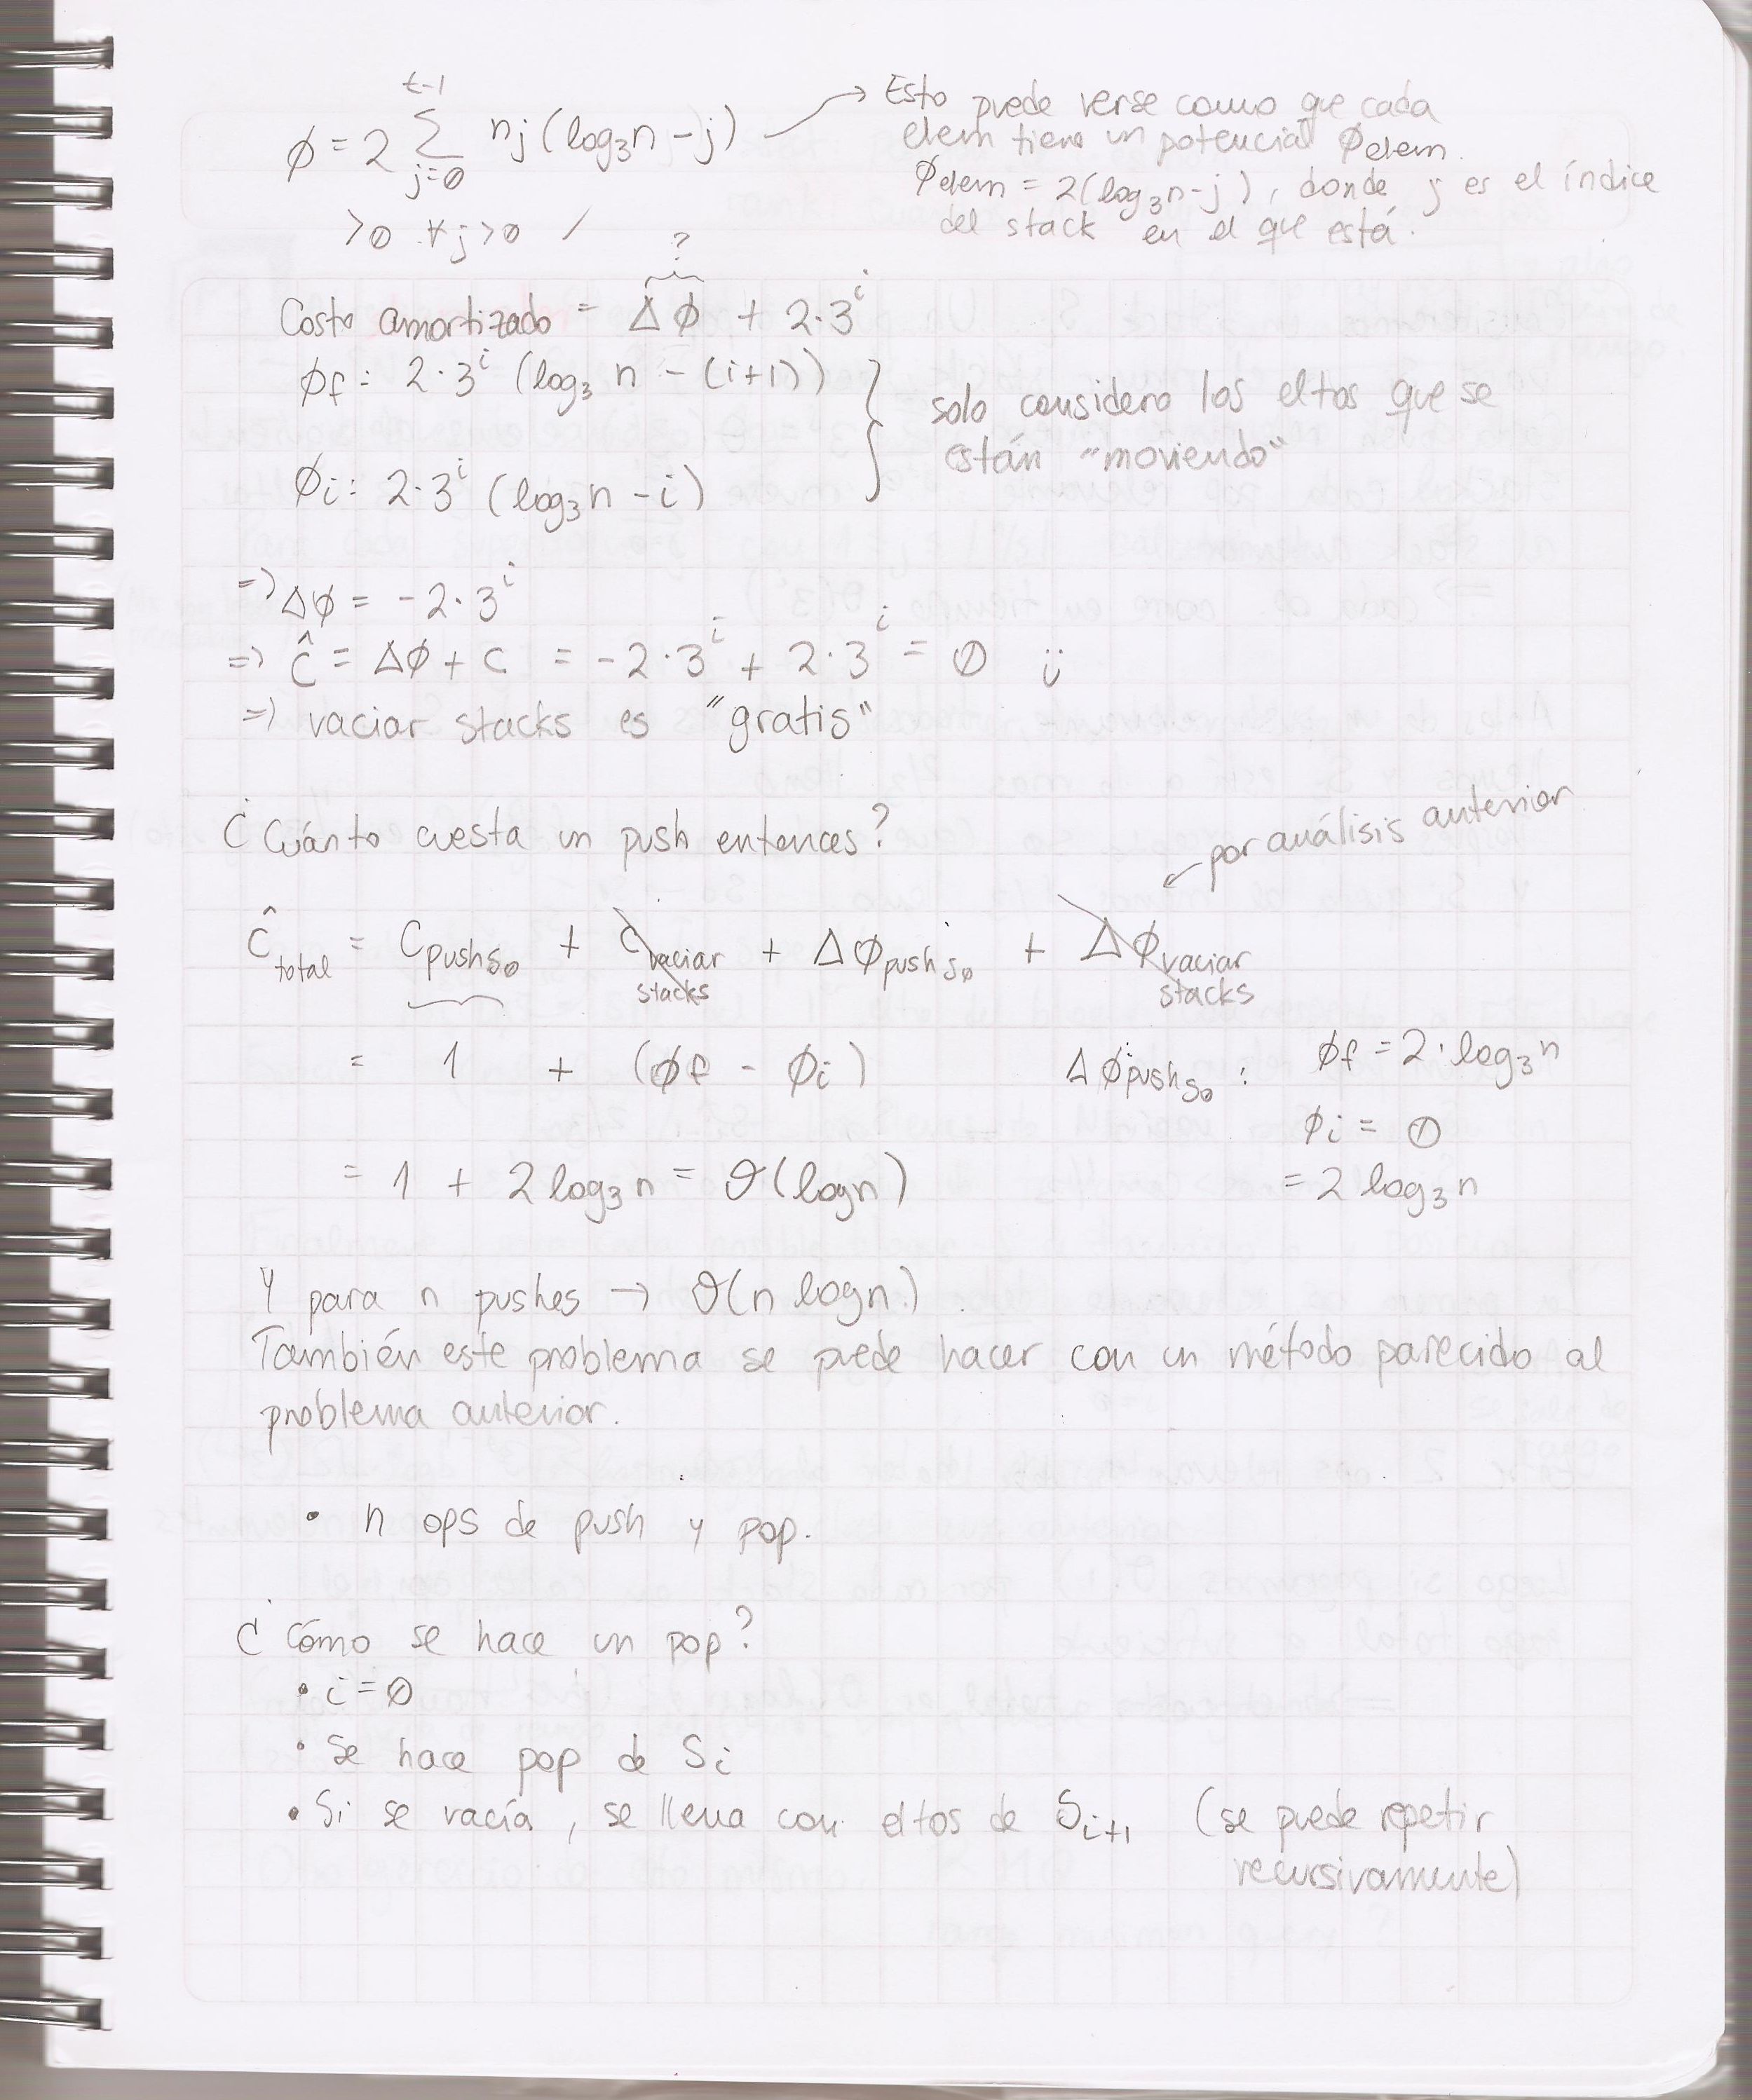 t-1
ϕ = 2 Σ nj (log₃n - j) → Esto puede verse como que cada
j=0
elem tiene un potencial ϕelem.
ϕelem = 2(log₃n - j), donde j es el índice
del stack en el que está.
>0 ∀j>0 /
?
Costo amortizado = Δϕ + 2·3ⁱ
ϕf: 2·3ⁱ (log₃ n - (i+1))
ϕi: 2·3ⁱ (log₃n - i)
solo considero los eltos que se
están "moviendo"
=> Δϕ = -2·3ⁱ
=> ĉ = Δϕ + c = -2·3ⁱ + 2·3ⁱ = 0 ü
=> vaciar stacks es "gratis"
¿Cuánto cuesta un push entonces?
por análisis anterior
ĉ total = c push s₀ + c vaciar stacks + Δϕ push s₀ + Δϕ vaciar stacks
= 1 + (ϕf - ϕi)
Δϕ push s₀ : ϕf = 2·log₃n
ϕi = 0
= 1 + 2 log₃ n = ϑ(logn)
= 2 log₃ n
Y para n pushes → ϑ(n logn).
También este problema se puede hacer con un método parecido al
problema anterior.
• n ops de push y pop.
¿Cómo se hace un pop?
• i=0
• Se hace pop de Si
• Si se vacía, se llena con eltos de Si+1 (se puede repetir
recursivamente)